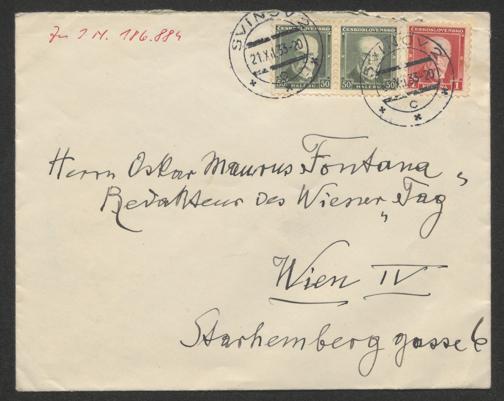 Zu I N. 186.884
SVINOV
21.XI.33-20
ČESKOSLOVENSKO
ČESKOSLOVENSKO
ČESKOSLOVENSKO
50 HALÉŘŮ 50
50 HALÉŘŮ 50
1
SVINOV
XI.33-20
C
Herrn Oskar Maurus Fontana
Redakteur des Wiener „Tag“
Wien IV
Starhemberggasse 6